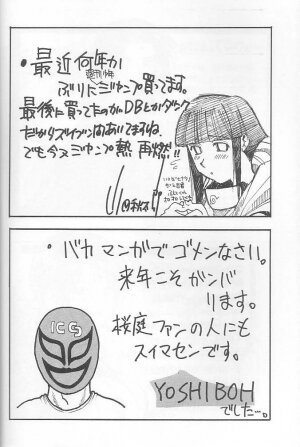 ・最近何年か
ぶりにジャンプ買ってます。
最後に買ってたのがDBとかダイク
だからズイブン間あいてますね
でも今又ジャンプ熱 再燃!!
・バカマンガでゴメンなさい。
来年こそガンバ
ります。
桜庭ファンの人にも
スイマセンです。
ICC
YOSHIBOH
でした…。